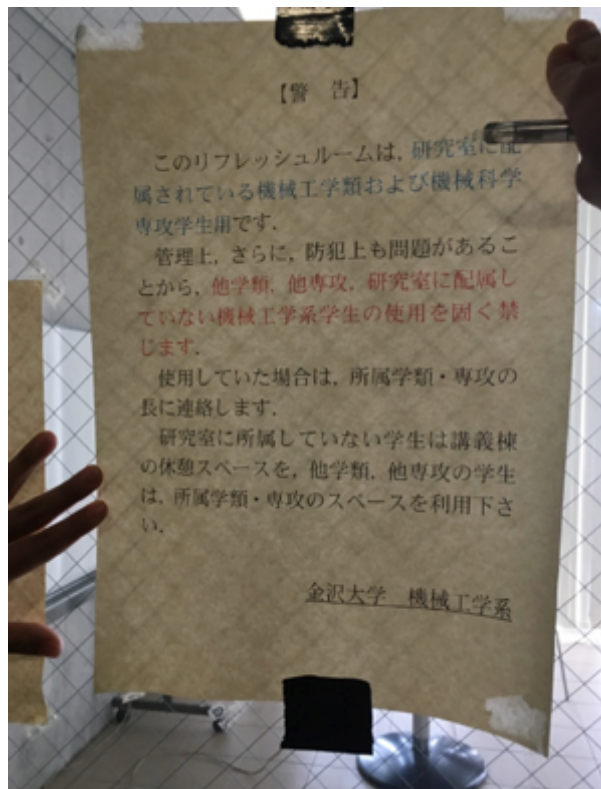 【警　告】
このリフレッシュルームは，研究室に配
属されている機械工学類および機械科学
専攻学生用です．
管理上，さらに，防犯上も問題があるこ
とから，他学類，他専攻，研究室に配属し
ていない機械工学系学生の使用を固く禁
じます．
使用していた場合は，所属学類・専攻の
長に連絡します．
研究室に所属していない学生は講義棟
の休憩スペースを，他学類，他専攻の学生
は，所属学類・専攻のスペースを利用下さ
い．
金沢大学　機械工学系